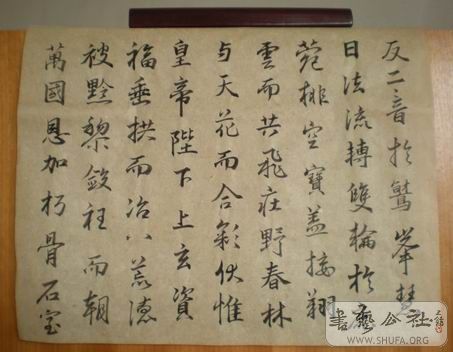 反二音於鷲峯慧
日法流轉雙輪於鹿
菀排空寶盖接翔
雲而共飛莊野春林
与天花而合彩伏惟
皇帝陛下上玄資
福垂拱而治八荒德
被黔黎斂衽而朝
萬國恩加朽骨石室
書藝公社
WWW.SHUFA.ORG